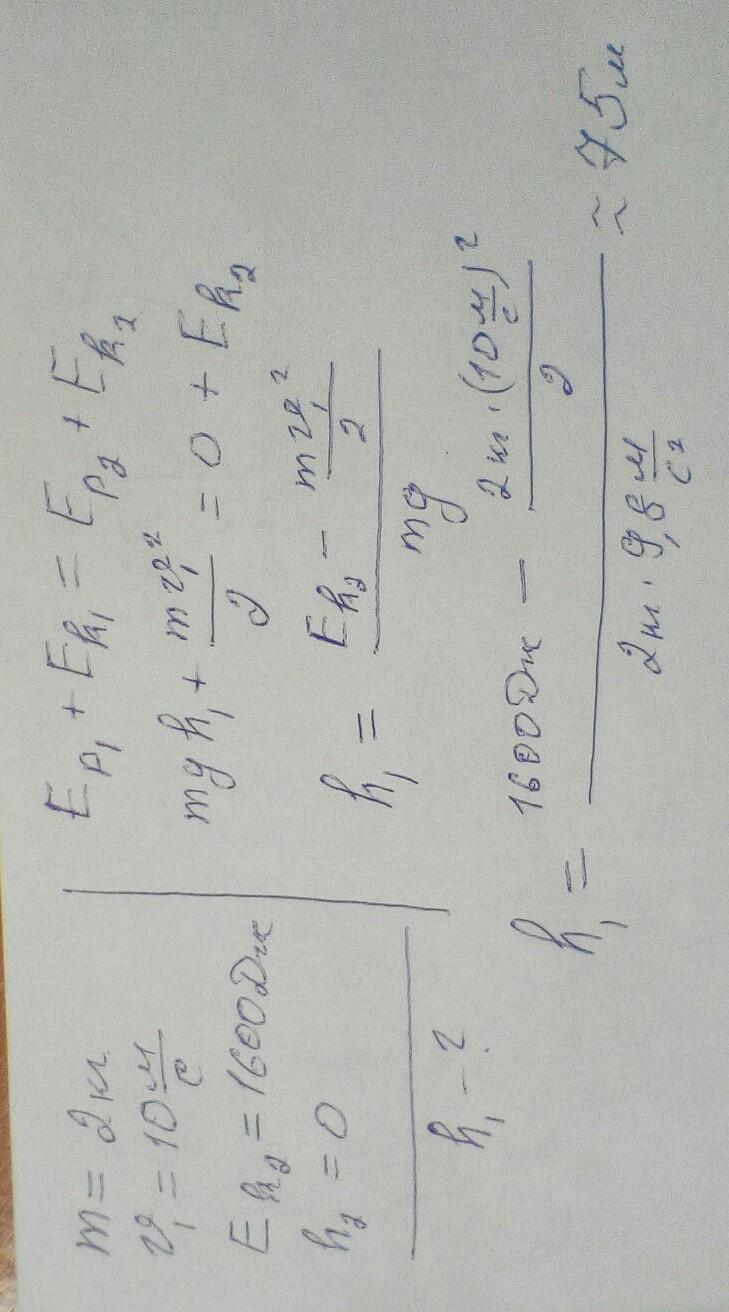 m = 2кг
v₁ = 10 м/с
Eк₂ = 1600Дж
h₂ = 0
h₁ – ?
Eр₁ + Eк₁ = Eр₂ + Eк₂
mgh₁ + mv₁²/2 = 0 + Eк₂
h₁ = (Eк₂ – mv₁²/2)/mg
h₁ = (1600Дж – 2кг·(10 м/с)²/2)/(2кг·9,8 м/с²) ≈ 75м